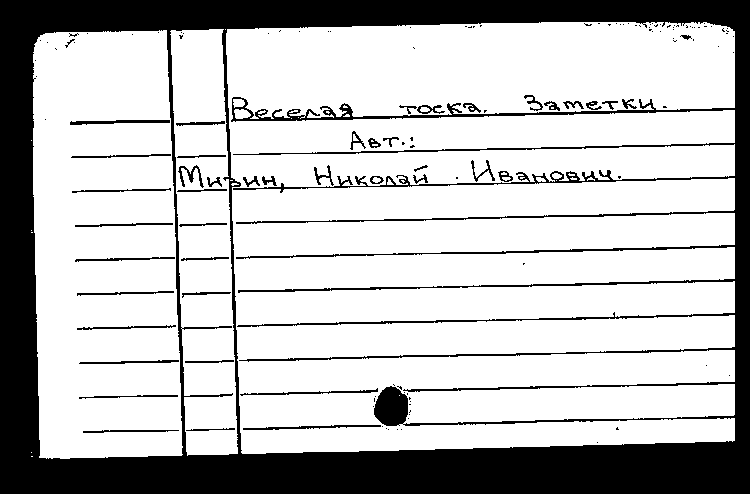 Веселая тоска. Заметки.
Авт.:
Мизин, Николай Иванович.